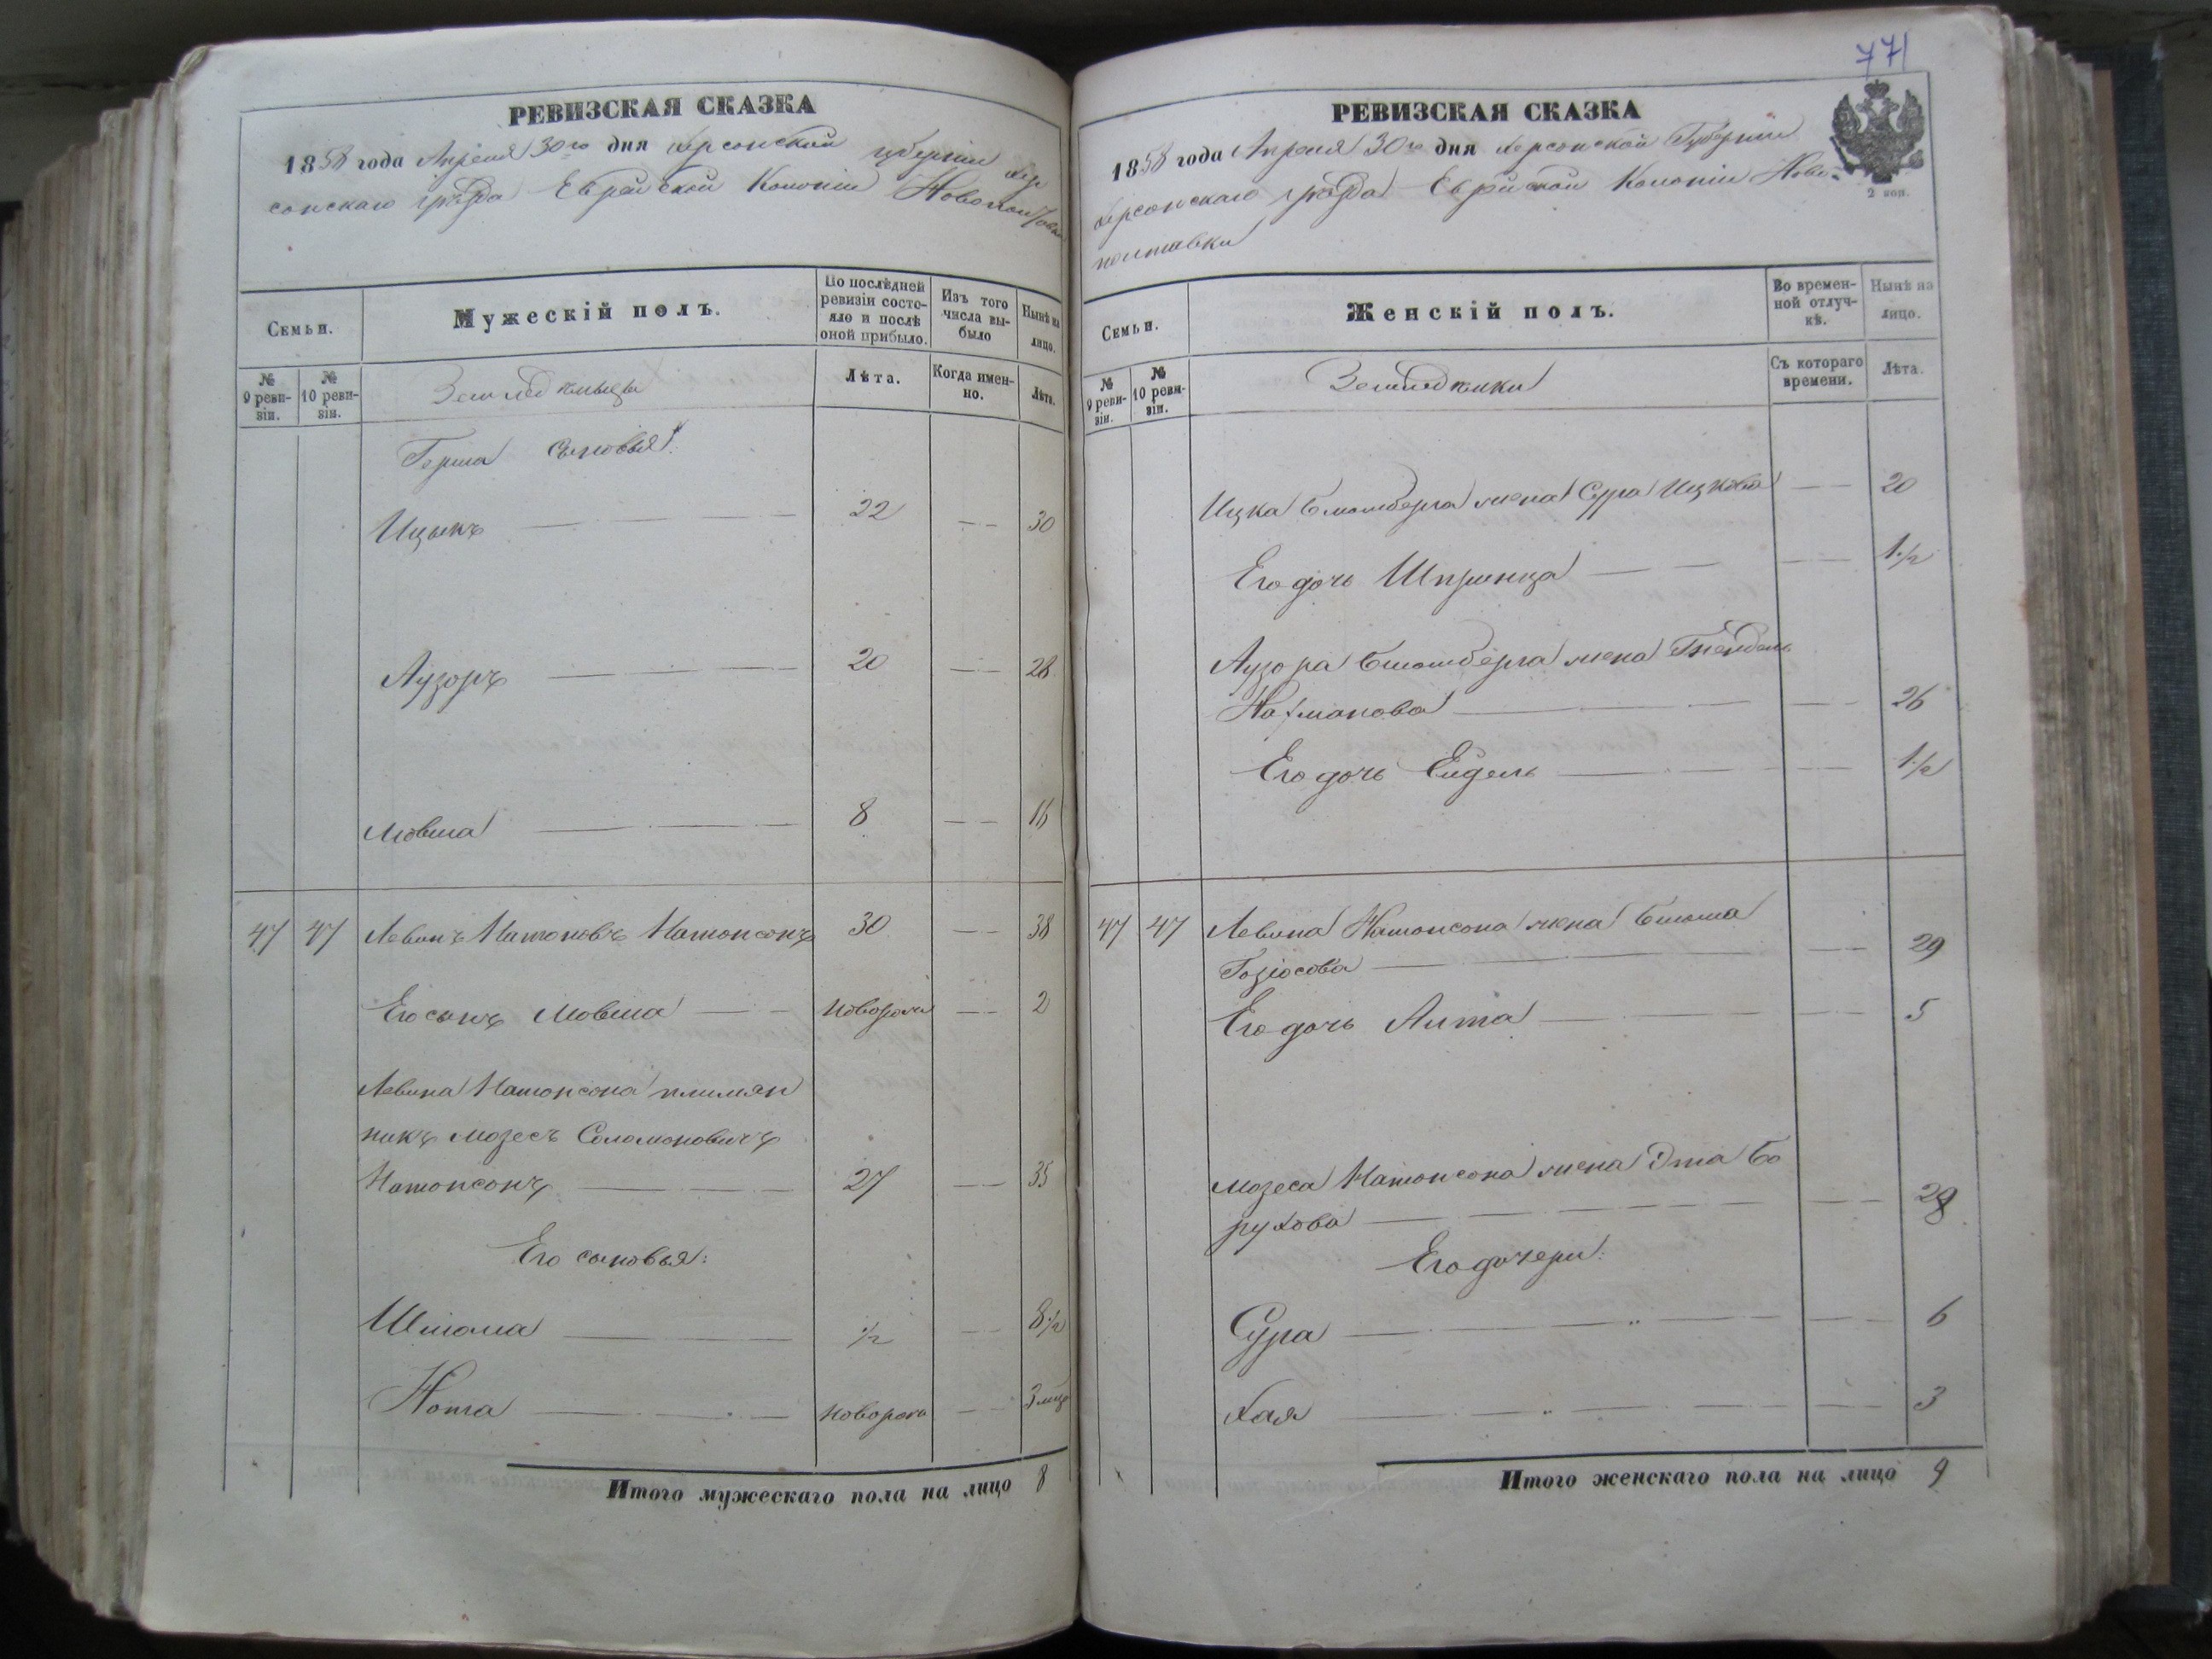 771
РЕВИЗСКАЯ СКАЗКА
1858 года Апреля 30го дня Херсонской Губерніи Хер
сонскаго уѣзда Еврейской Колоніи Новополтовки
Семьи.
Мужескій полъ.
По послѣдней ревизіи состояло и послѣ оной прибыло.
Изъ того числа выбыло
Нынѣ на лицо.
№ 9 ревизіи.
№ 10 ревизіи.
Земледѣльцы
Лѣта.
Когда именно.
Лѣта.
Герша сыновья:
Ицыкъ 22 30
Аузоръ 20 28
Мовша 8 16
47 47 Левинъ Натоновъ Натонсонъ 30 38
Его сынъ Мовша новорож 2
Левина Натонсона племян
никъ Мозесъ Соломоновичъ
Натонсонъ 27 35
Его сыновья:
Шлома 1/2 8 1/2
Нота новорож 3 мѣс
Итого мужескаго пола на лицо 8
РЕВИЗСКАЯ СКАЗКА
1858 года Апреля 30го дня Херсонской Губерніи
Херсонскаго уѣзда Еврейской Колоніи Ново-
полтавки
2 коп.
Семьи.
Женскій полъ.
Во временной отлучкѣ.
Нынѣ на лицо.
№ 9 ревизіи.
№ 10 ревизіи.
Земледѣлки
Съ котораго времени.
Лѣта.
Ицка Блюмберга жена Сура Ицкова 20
Его дочь Шпринца 1/2
Аузора Блюмберга жена Гнендель
Нахманова 26
Его дочь Ейдель 1/2
47 47 Левина Натонсона жена Блюма
29
Его дочь Алта 5
Мозеса Натонсона жена Эта Бо
рухова 29
Его дочери:
Сура 6
Хая 3
Итого женскаго пола на лицо 9